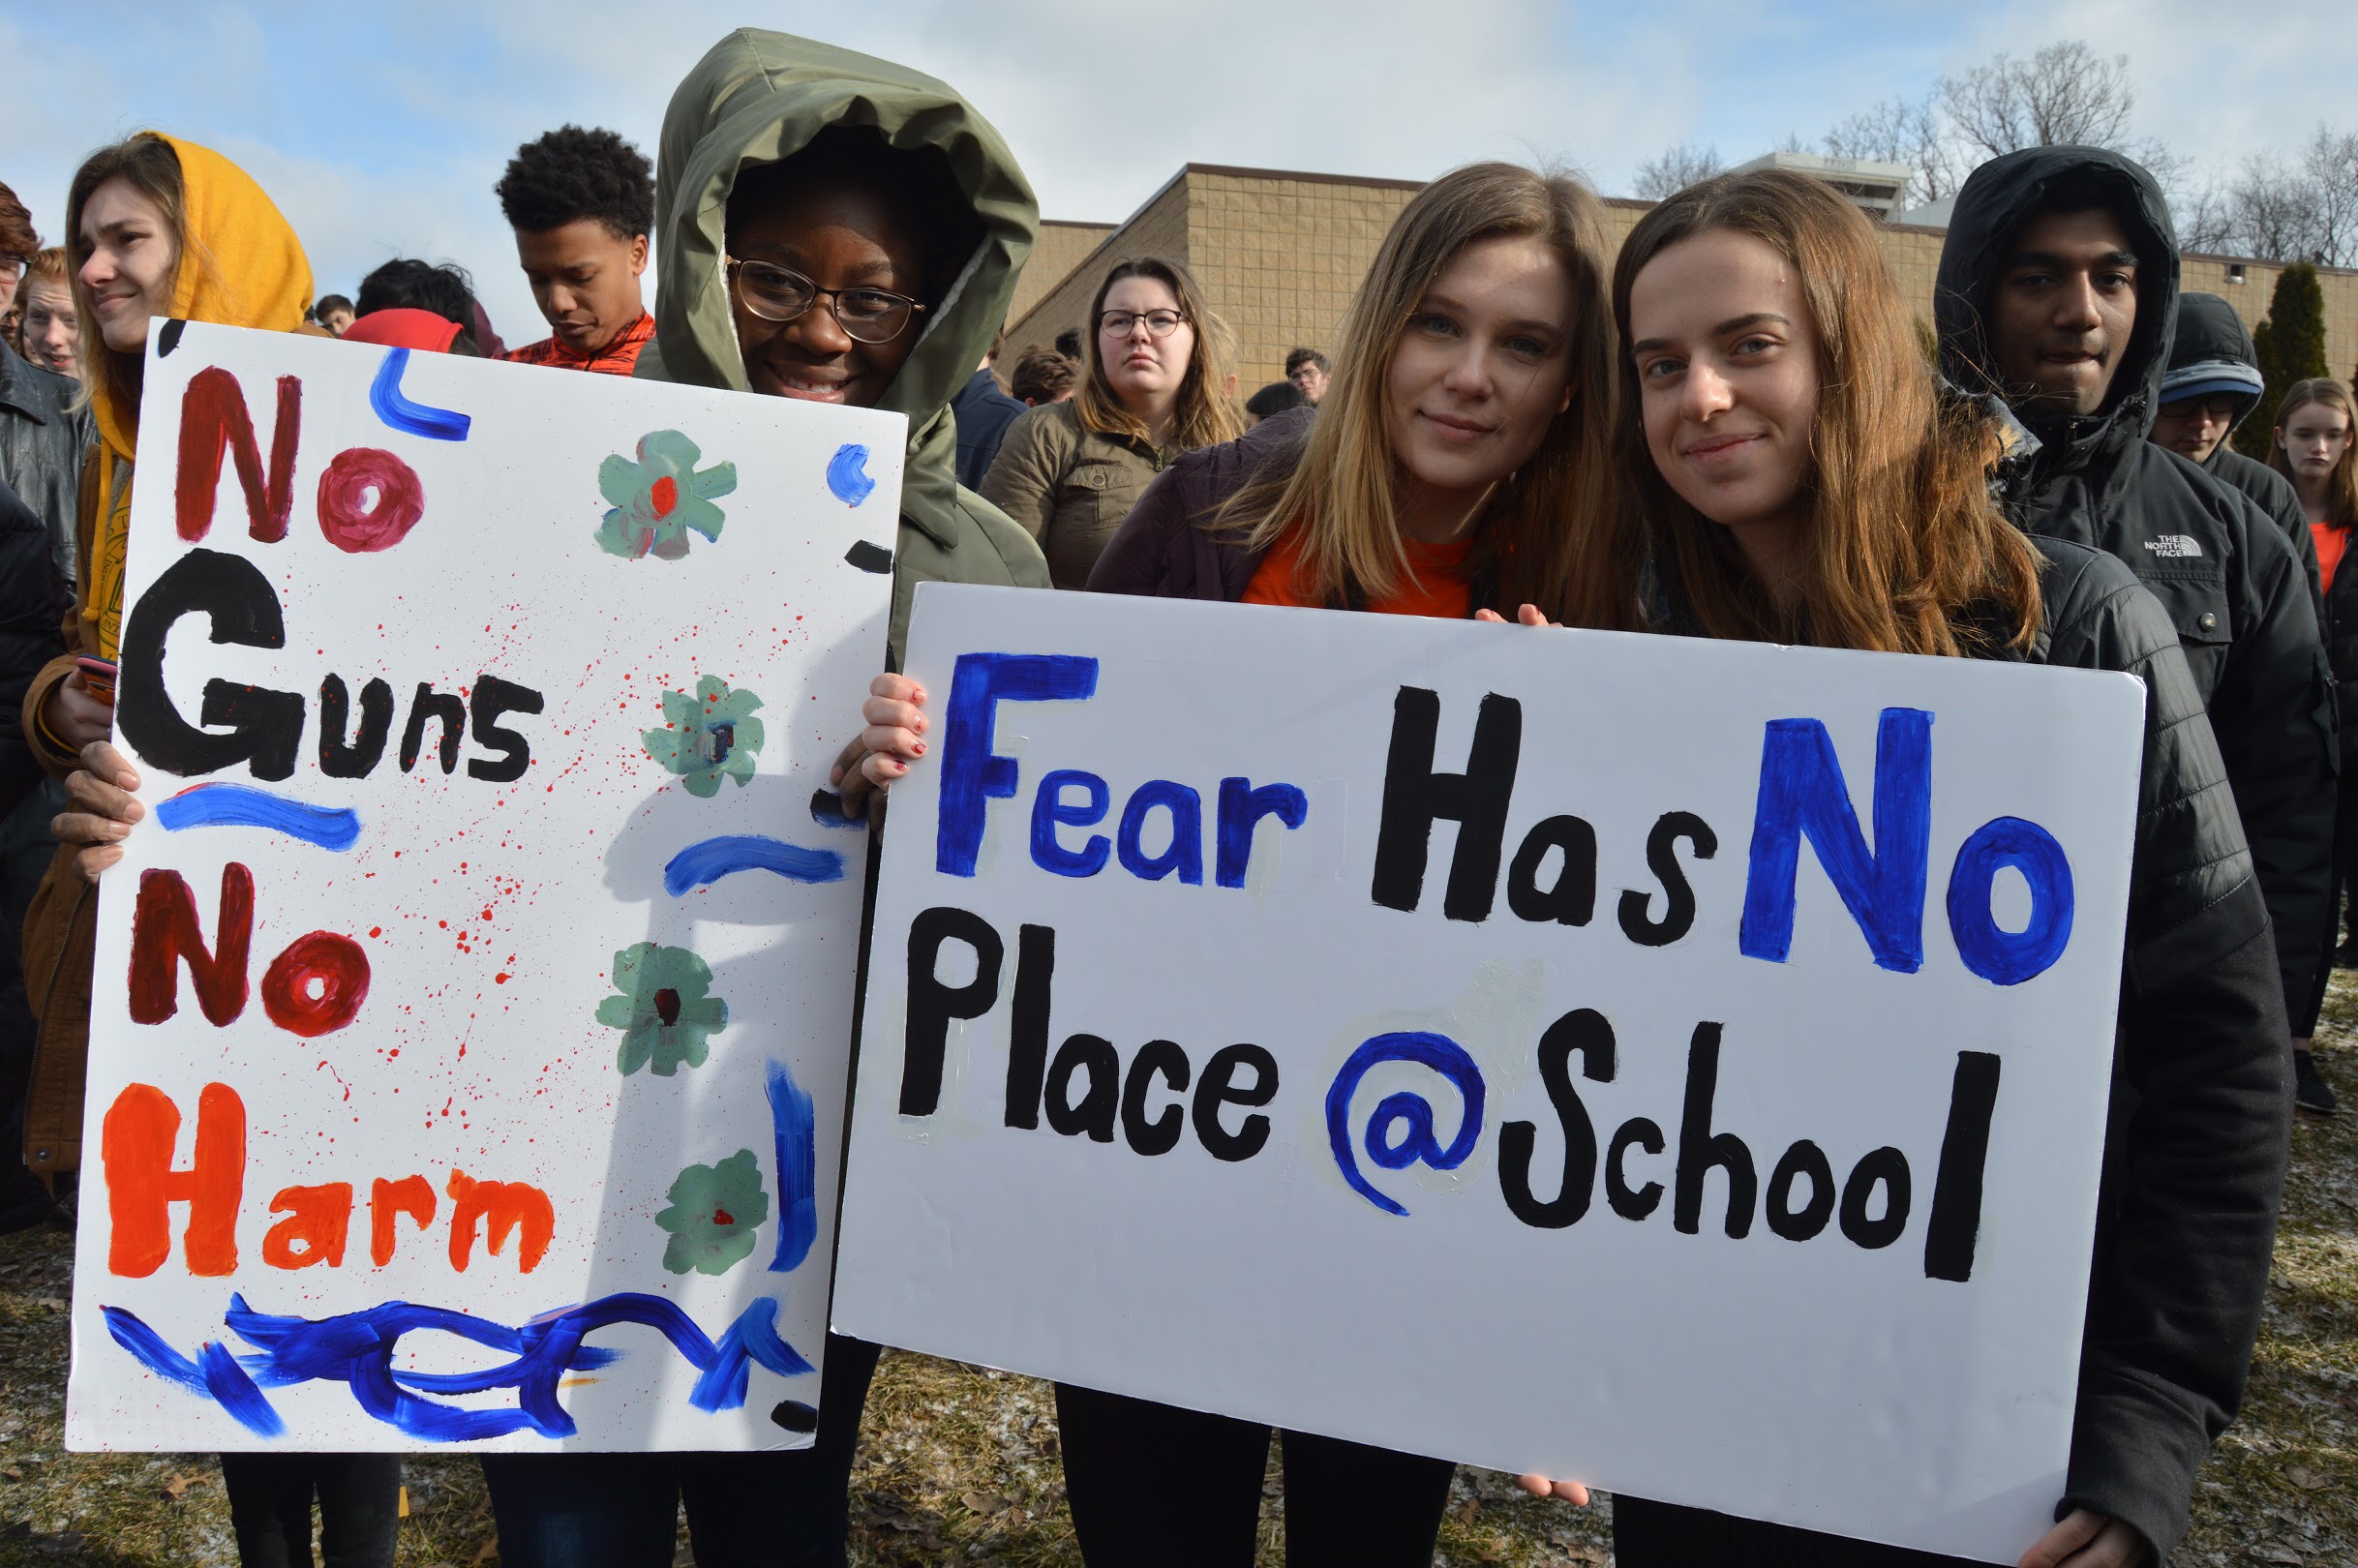 No
Guns
No
Harm
Fear Has No
Place @ School
THE
NORTH
FACE